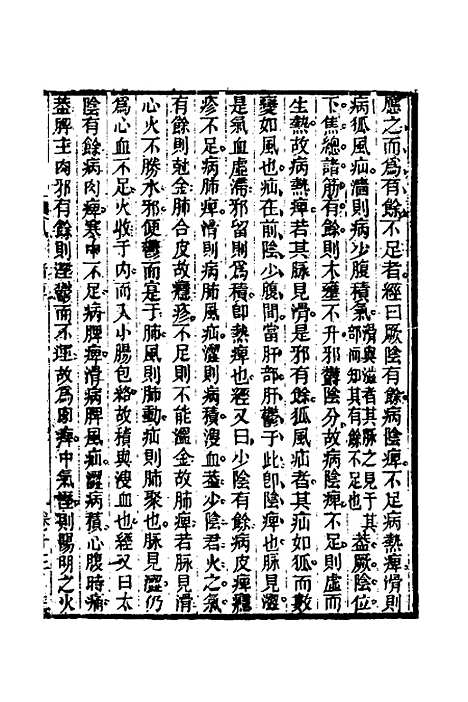 應之而爲有餘不足者經曰厥陰有餘病陰痺不足病熱痺滑則
病狐風疝濇則病少腹積氣滑與澁者其脈之見于其部而知其有餘不足也蓋厥陰位
下焦總諸筋有餘則木壅不升邪鬱陰分故病陰痺不足則虛而
生熱故病熱痺若其脈見滑是邪有餘風疝者其疝如狐而數
變如風也疝在前陰少腹間當肝部肝鬱于此卽陰痺也脈見濇
是氣血虛滯邪留則爲積卽熱痺也經又曰少陰有餘病皮痺癮
疹不足病肺痺滑則病肺風疝澀則病積溲血蓋少陰君火之氣
有餘則尅金肺合皮故癮疹不足則不能溫金故肺痺若脈見滑
心火不勝水邪便鬱而是于肺風則肺動疝則肺聚也脈見澀仍
爲心血不足火收于內而入小腸包絡故積與溲血也經又曰太
陰有餘病肉痺寒中不足病脾痺滑病脾風疝澀病積心腹時痛
蓋脾主肉邪有餘則溼鬱而不運故爲肉痺中氣溼則陽明之火